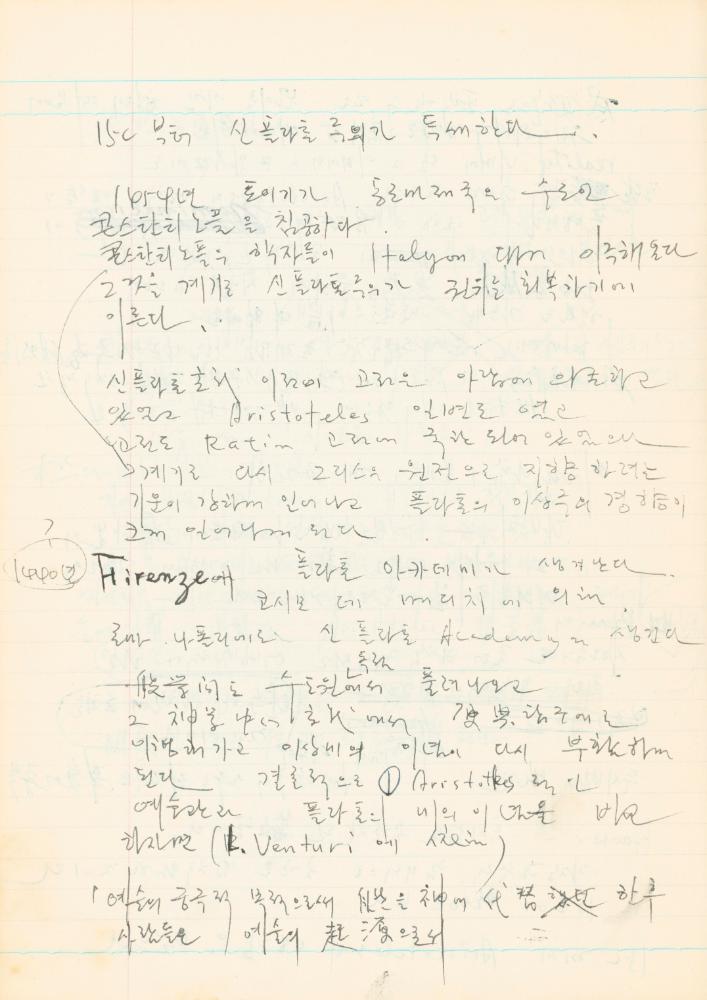 15C 부터 신플라톤주의가 득세한다.
1454년 토이기가 동로마제국의 수도인
콘스탄티노플을 침공하다.
콘스탄티노플의 학자들이 Italy에 대거 이주해온다
그것을 계기로 신플라톤주의가 권위를 회복하기에
이른다.
신플라톤 이전의 고전은 아랍에 의존하고
있었고 Aristoteles 일변도 였고
고전도 Ratin 고전에 국한되어 있었으나
계기로 다시 그리스의 원전으로 지향하려는
기운이 강하게 일어나고 플라톤의 이상주의 경향이
크게 일어나게 된다.
?
1440년 Firenze에 플라톤 아카데미가 생겨난다.
코시모 데 메디치에 의해.
로마 나폴리에도 신플라톤 Academy가 생긴다
一般学問도 수도원에서 풀려나오고
그 에서 美 탐구에로
이행해가고 이상미의 이념이 다시 부활하게
된다 결론적으로 ① Aristoteles 적인
예술관과 플라톤의 미의 이념을 비교
하자면 (L. Venturi 에 )
「예술의 궁극적 목적으로써 自然을 神에 代替 한 후
사람들은 예술의 으로서